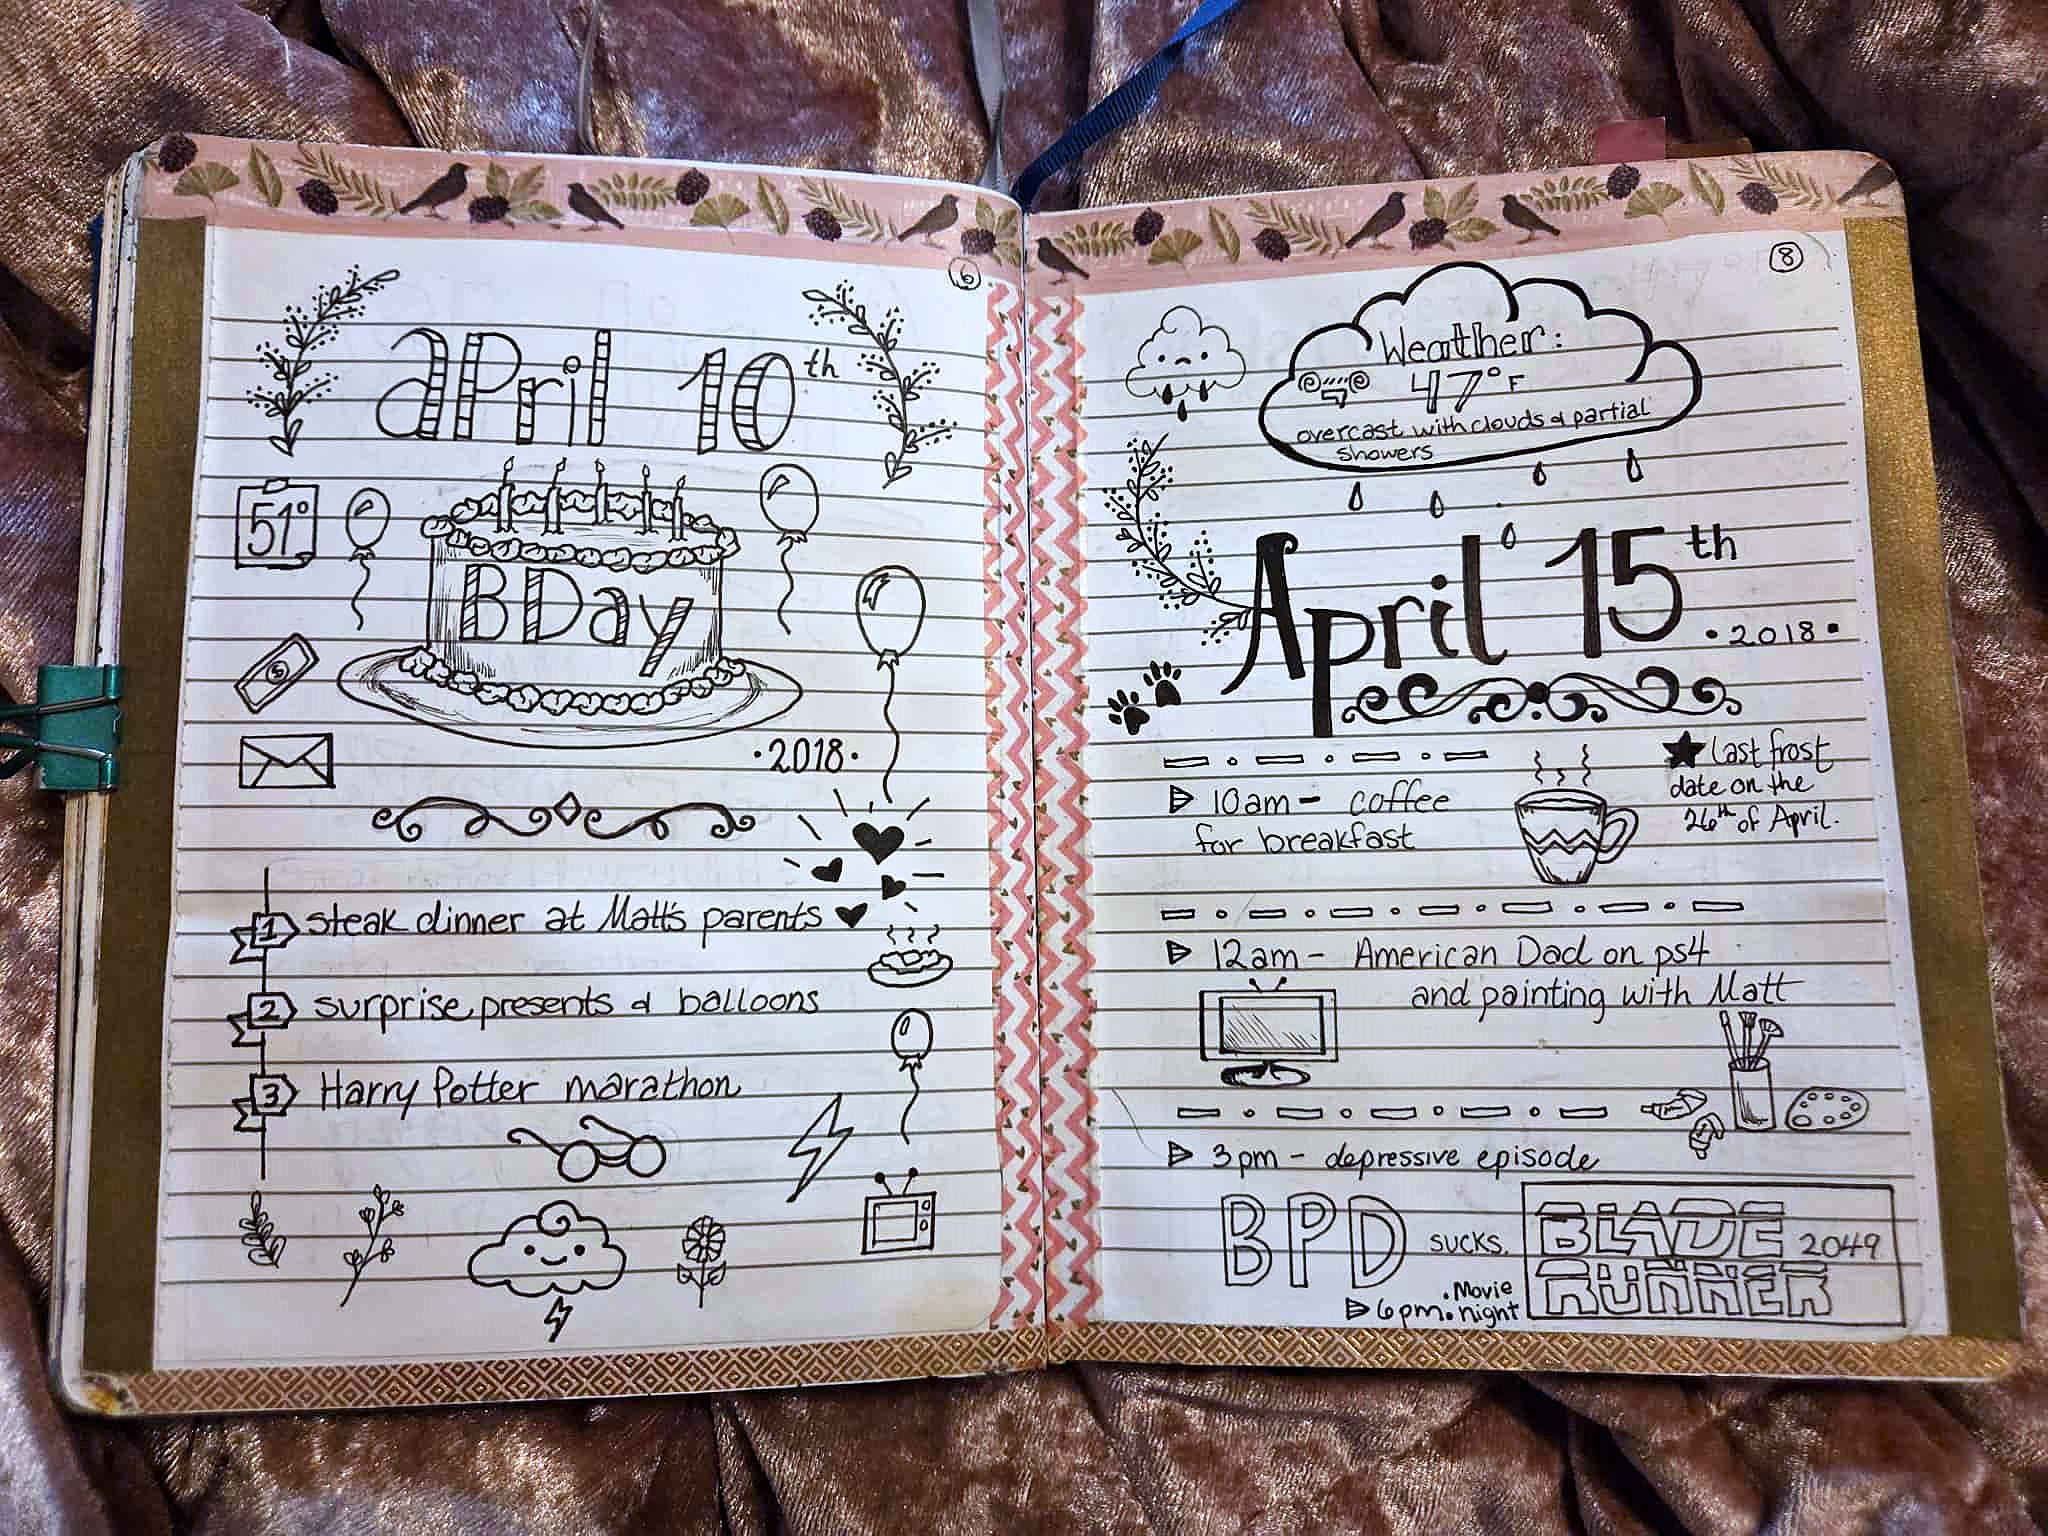 6
April 10th
51°
BDay
$
·2018·
1 steak dinner at Matt's parents
2 surprise presents & balloons
3 Harry Potter marathon
8
Weather:
47°F
overcast with clouds & partial
showers
April 15th
·2018·
★ last frost
date on the
26th of April.
10am - coffee
for breakfast
12am - American Dad on ps4
and painting with Matt
3pm - depressive episode
BPD sucks.
6pm: Movie
night
BLADE 2049
RUNNER